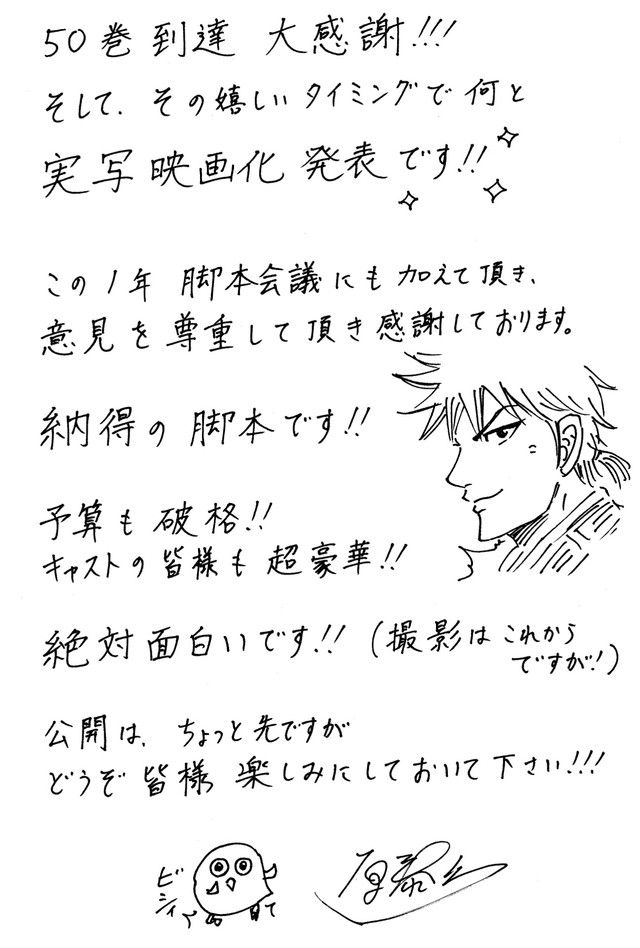 50巻 到達 大感謝!!!
そして、その嬉しいタイミングで何と
実写映画化 発表です!!
この1年 脚本会議にも加えて頂き、
意見を尊重して頂き感謝しております。
納得の脚本です!!
予算も破格!!
キャストの皆様も超豪華!!
絶対面白いです!! (撮影はこれから
ですが!)
公開は、ちょっと先ですが
どうぞ皆様 楽しみにしておいて下さい!!!
ビシィ
原泰久